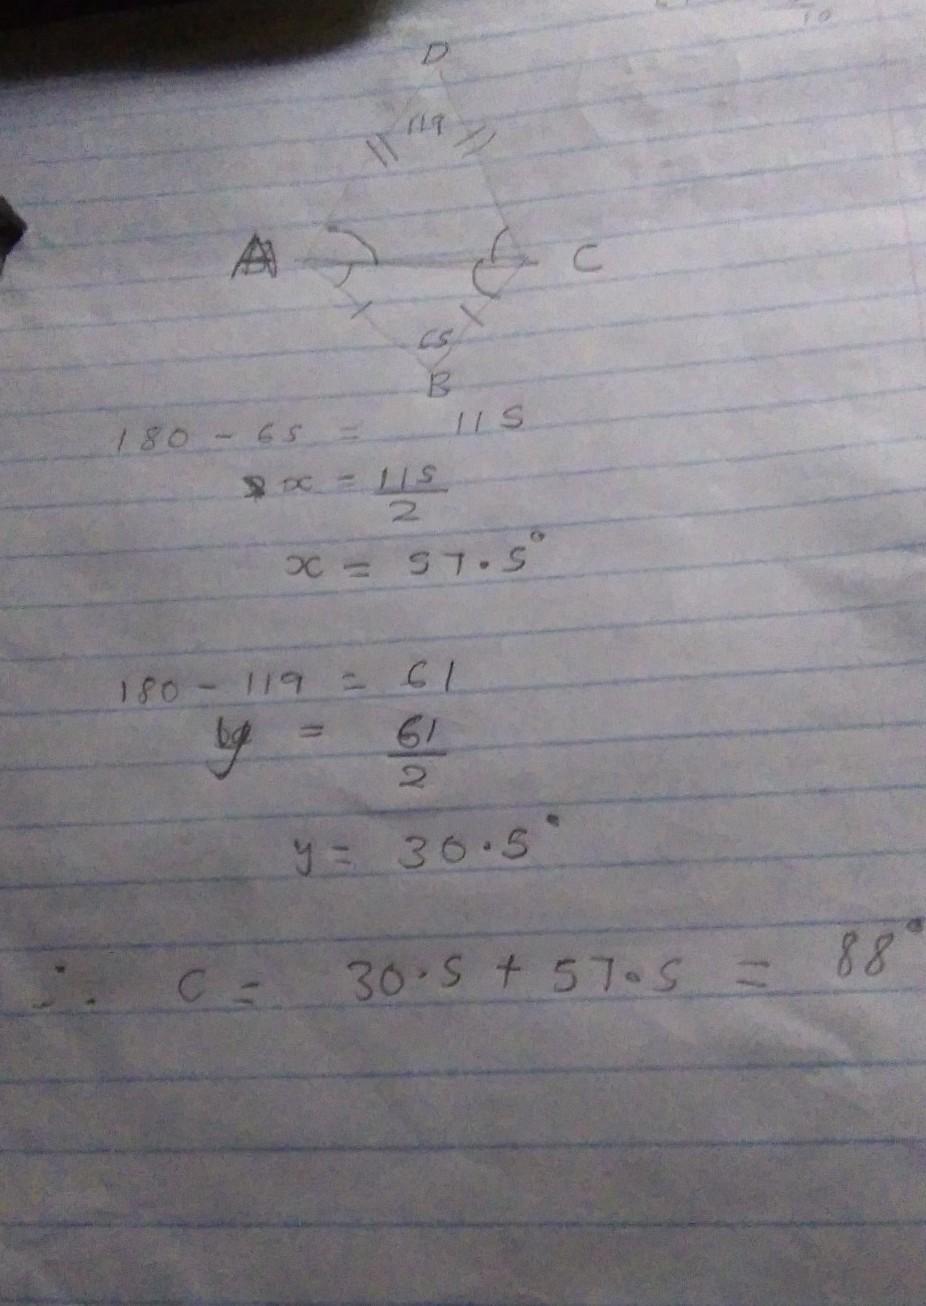 D
119
A C
65
B
180 - 65 = 115
x = 115/2
x = 57.5°
180 - 119 = 61
y = 61/2
y = 30.5°
∴ C = 30.5 + 57.5 = 88°